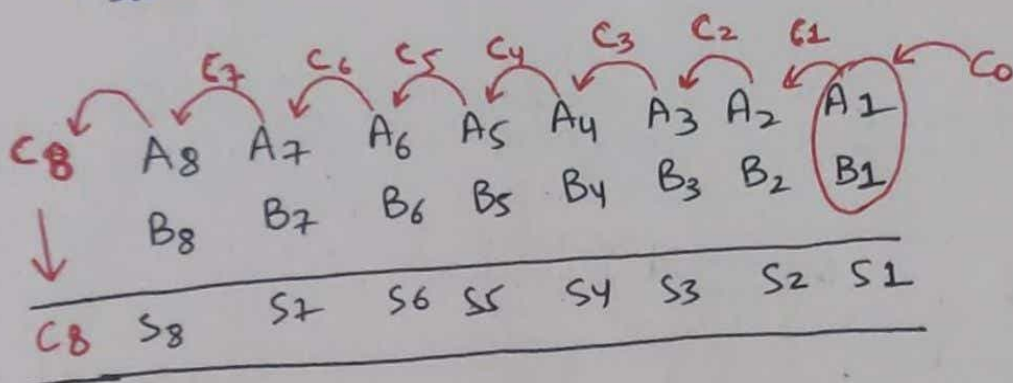 C7 C6 C5 C4 C3 C2 C1 C0
C8 A8 A7 A6 A5 A4 A3 A2 A1
B8 B7 B6 B5 B4 B3 B2 B1
C8 S8 S7 S6 S5 S4 S3 S2 S1